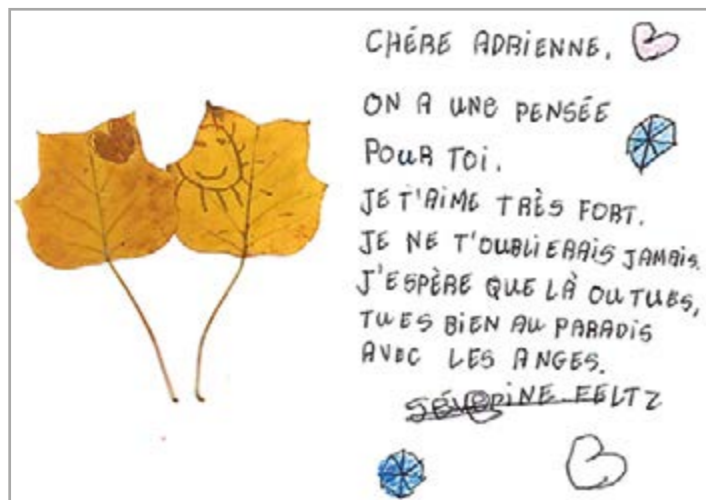 CHÉRE ADRIENNE,
ON A UNE PENSÉE
POUR TOI.
JE T'AIME TRÈS FORT.
JE NE T'OUBLIERAIS JAMAIS.
J'ESPÈRE QUE LÀ OU TU ES,
TU ES BIEN AU PARADIS
AVEC LES ANGES.
SÉVERINE FELTZ